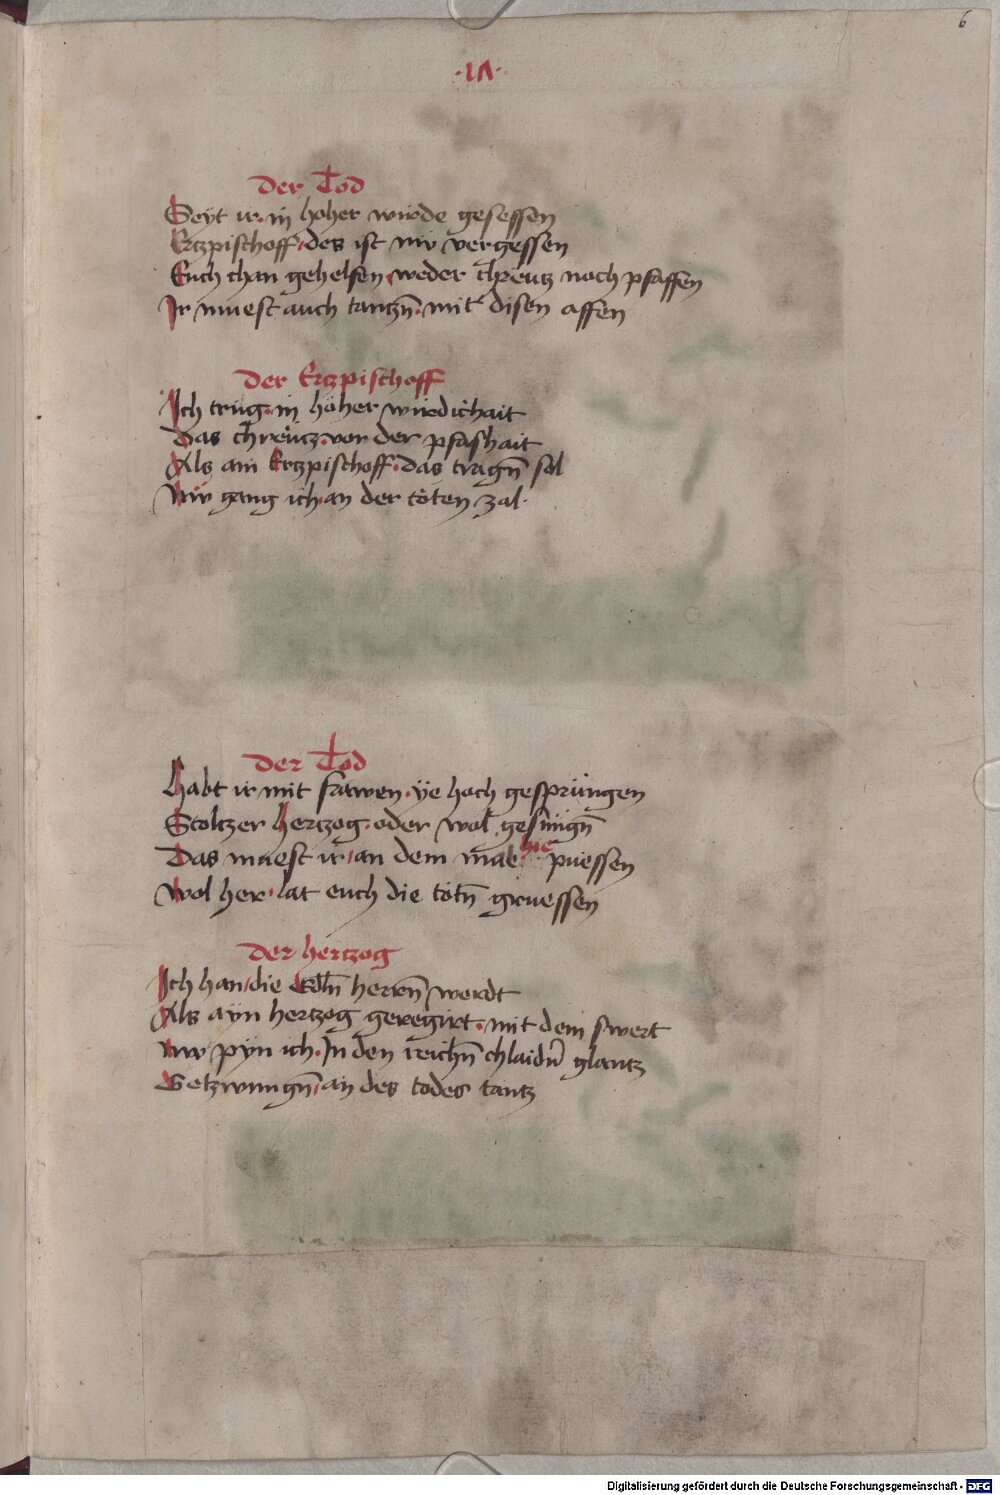 6
·VI·
Der Tod
Seyt ir in hoher wirde gesessen
Ertzpischoff des ist nw vergessen
Euch chan gehelfen weder chrewtz noch pfaffen
Ir muest auch tantzn̄ mit disen affen
Der Ertzpischoff
Ich trüg in höher wirdichait
Das chrëutz vor der pfafhait
Als ain Ertzpischoff das tragn̄ sol
Nw gang ich an der töten zal
Der Tod
Habt ir mit frawen ye hoch gesprüngen
Stoltzer hertzog oder wol gesungn̄
Das muest ir an dem mäe hie puessen
Wol her lat euch die totn̄ gruessen
Der hertzog
Ich han die Edln̄ herrn̄ werdt
Als ayn hertzog geregirt mit dem swert
Nw pyn ich In den reichn̄ chlaidn̄ glantz
Getzwungn̄ an des todes tantz
Digitalisierung gefördert durch die Deutsche Forschungsgemeinschaft - DFG